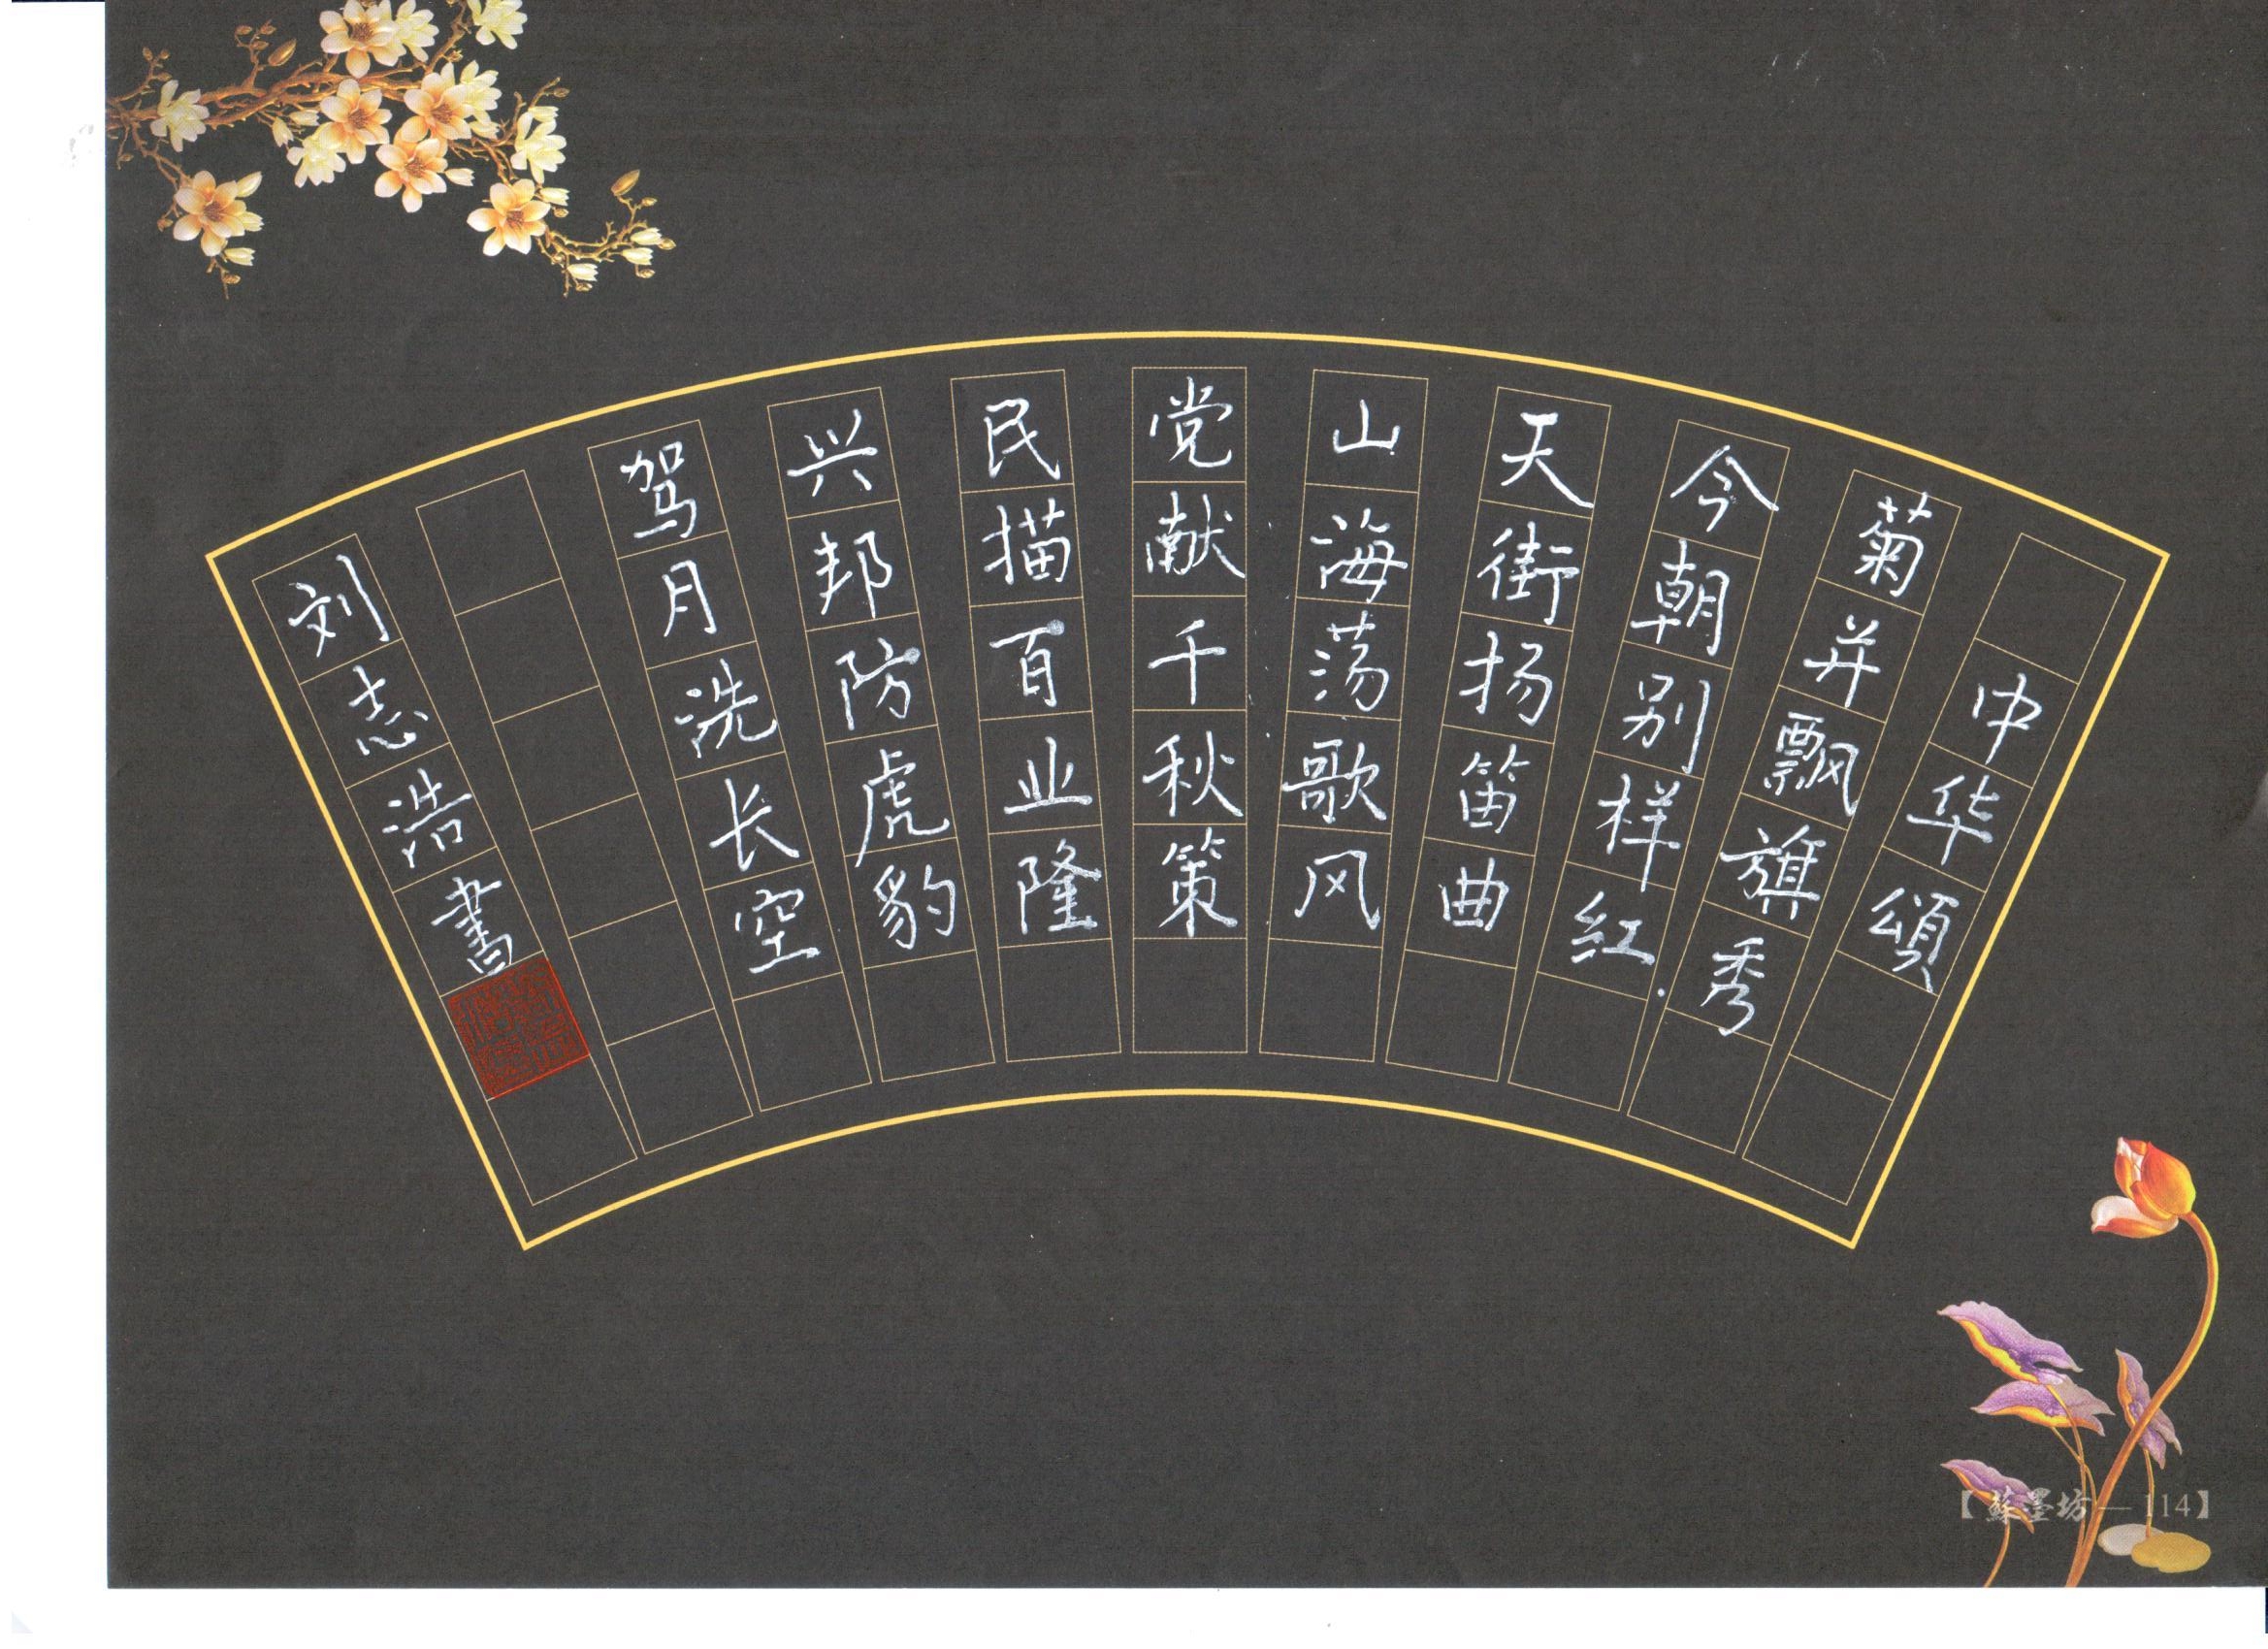 中华頌
菊并飘旗秀
今朝别样红
天街扬笛曲
山海荡歌风
党献千秋策
民描百业隆
兴邦防虎豹
驾月洗长空
刘志浩書
【蘇墨坊—114】